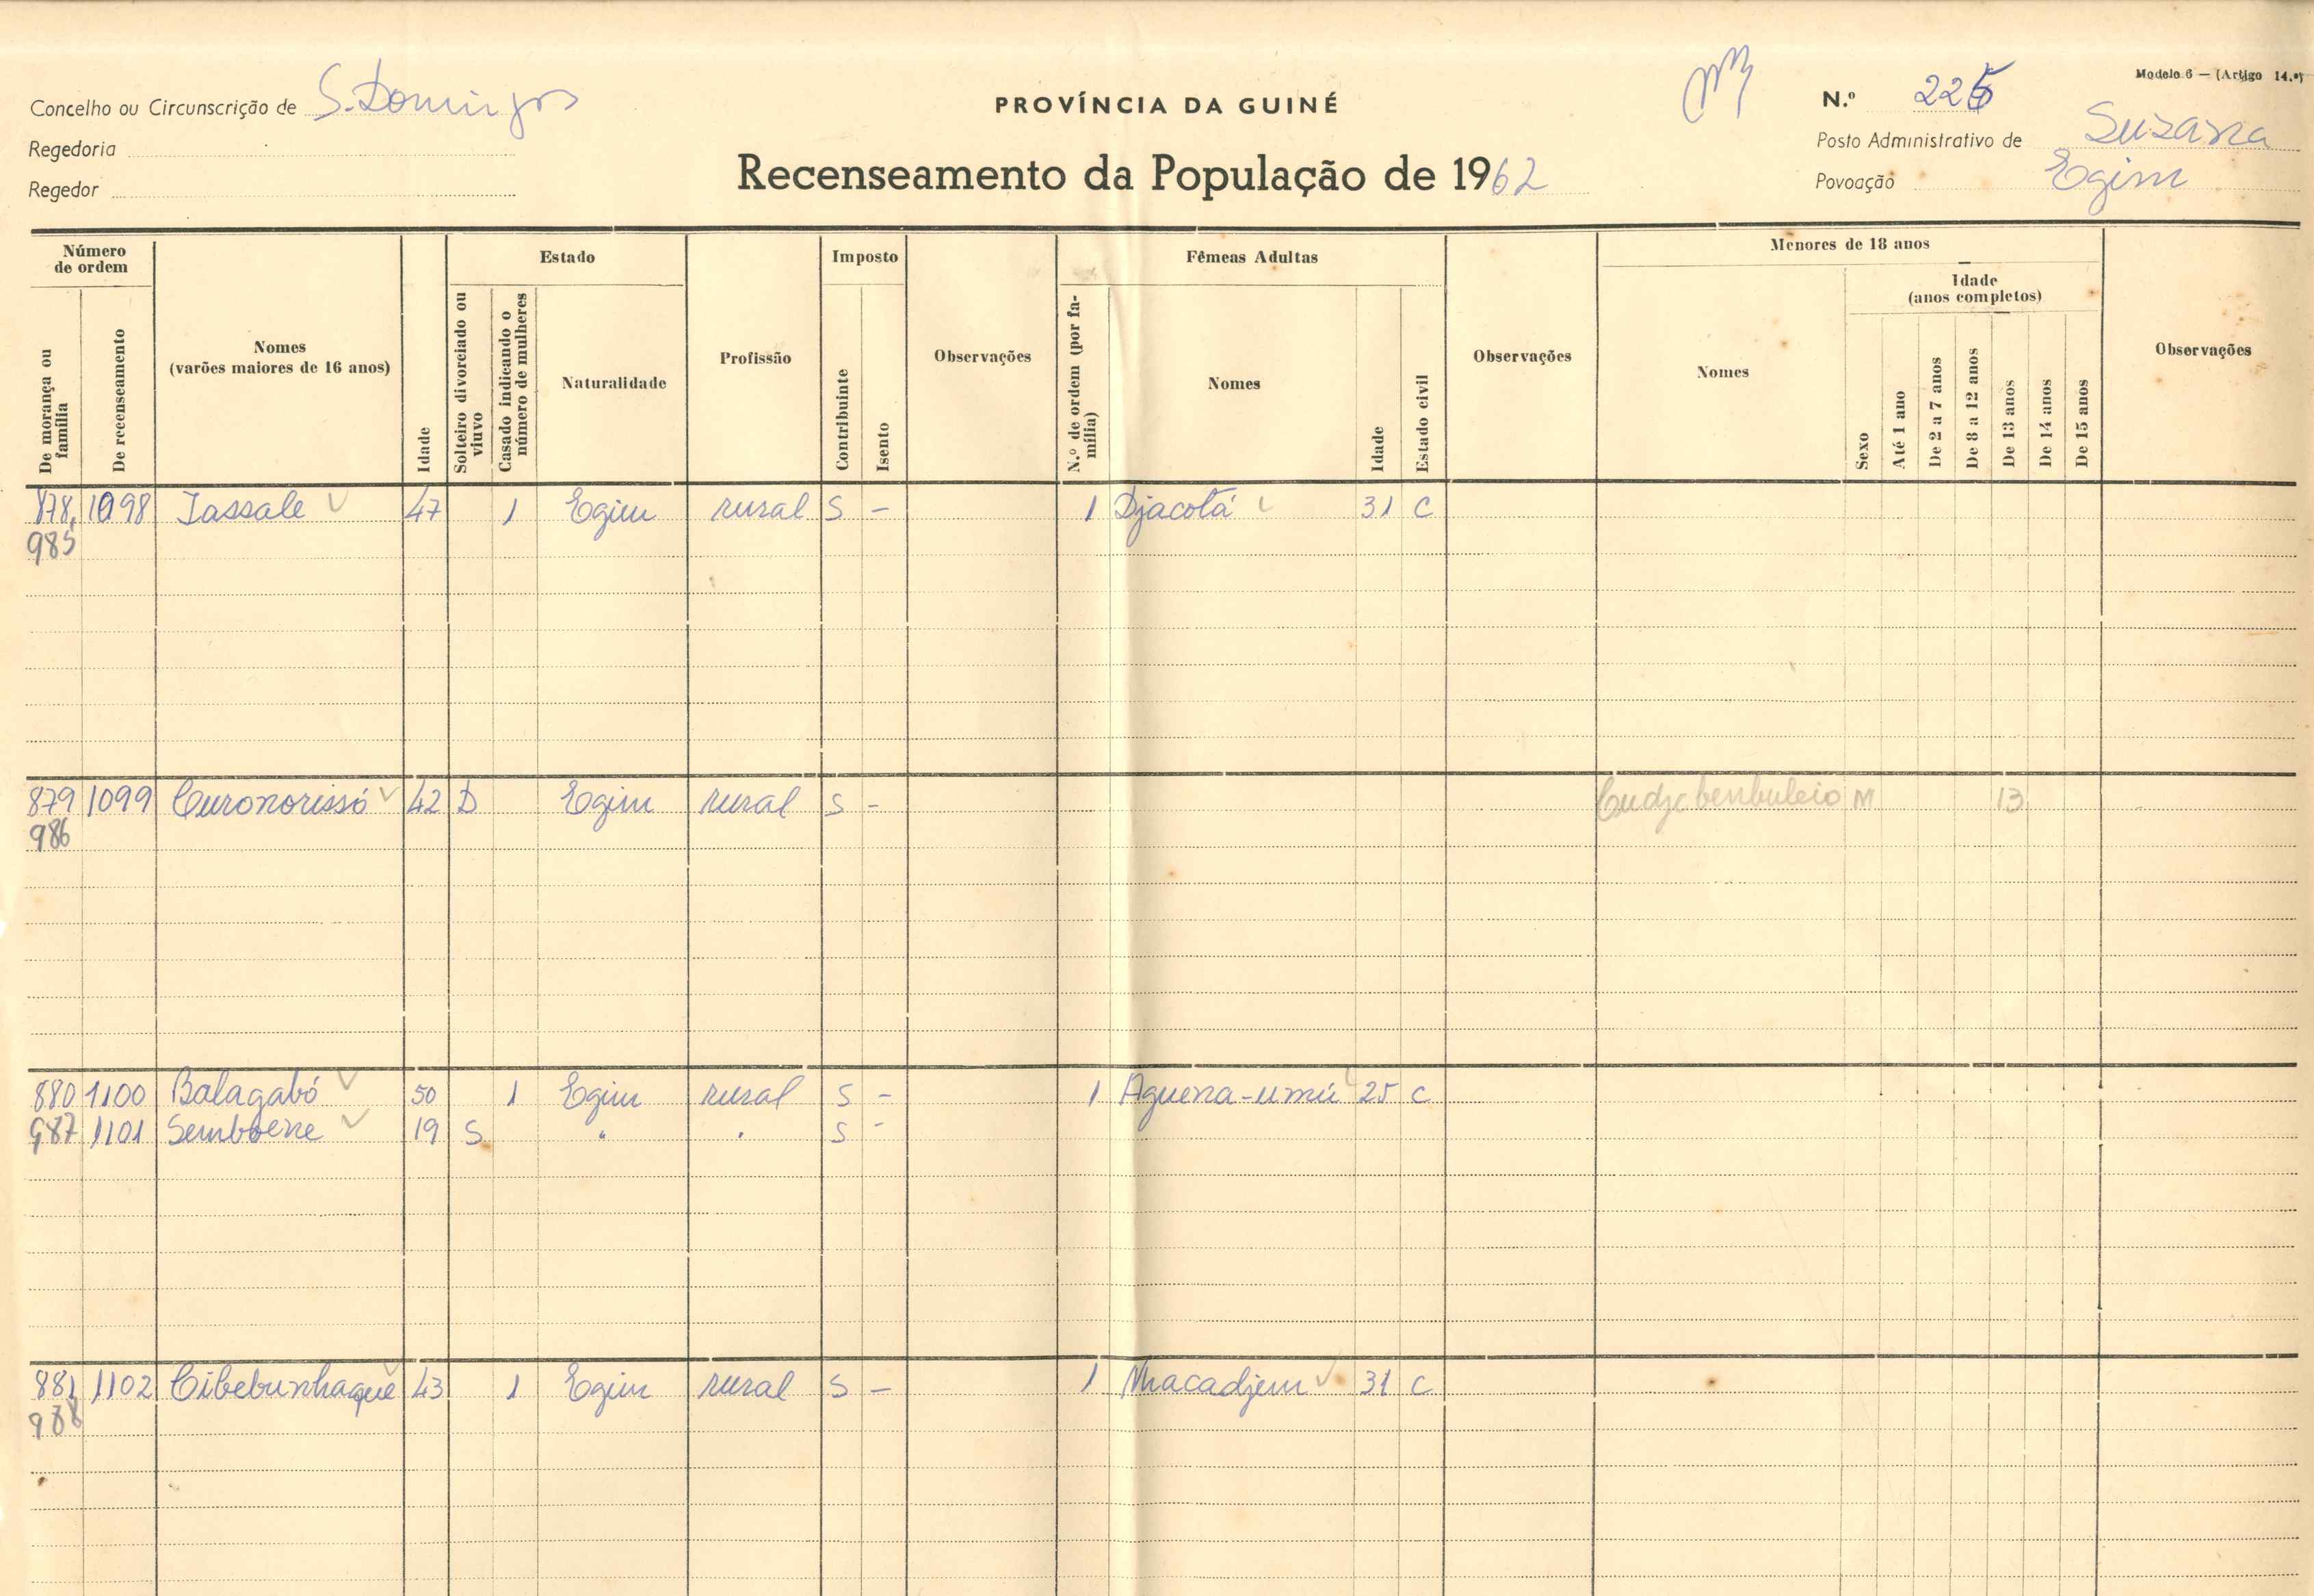 Modelo 6 — (Artigo 14.º)
Concelho ou Circunscrição de S. Domingos
PROVÍNCIA DA GUINÉ
N.º 225
Regedoria
Posto Administrativo de Suzana
Regedor
Recenseamento da População de 1962
Povoação Egim
Número de ordem
Estado
Imposto
Fêmeas Adultas
Menores de 18 anos
Idade (anos completos)
De morança ou família
De recenseamento
Nomes (varões maiores de 16 anos)
Idade
Solteiro divorciado ou viuvo
Casado indicando o número de mulheres
Naturalidade
Profissão
Contribuinte
Isento
Observações
N.º de ordem (por família)
Nomes
Idade
Estado civil
Observações
Nomes
Sexo
Até 1 ano
De 2 a 7 anos
De 8 a 12 anos
De 13 anos
De 14 anos
De 15 anos
Observações
878 1098 Jassale 47 1 Egim rural S - 1 Djacotá 31 C
985
879 1099 Curonorissó 42 D Egim rural S - Cudjebenbuleio M 13
986
880 1100 Balagabó 50 1 Egim rural S - 1 Aguena-umú 25 C
987 1101 Semboene 19 S " " S -
881 1102 Cibebunhaque 43 1 Egim rural S - 1 Nhacadjem 31 C
988